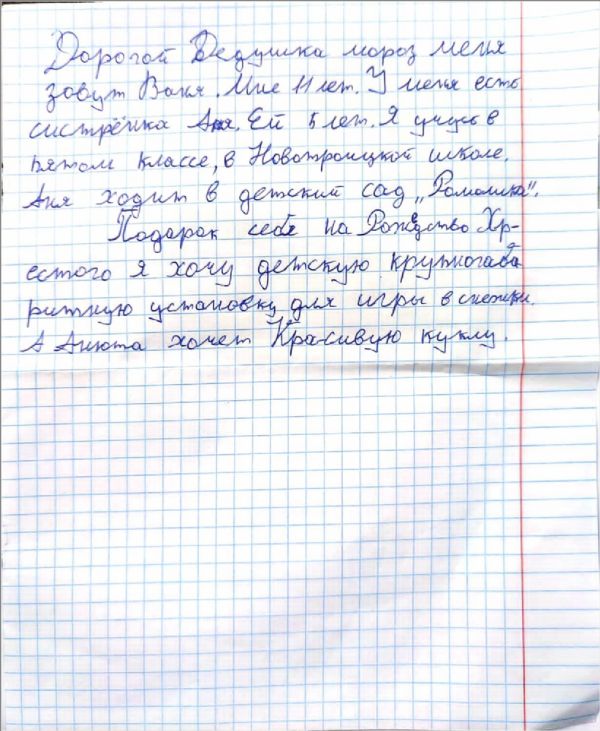 Дорогой Дедушка мороз меня
зовут Ваня. Мне 11 лет. У меня есть
систрёнка Аня. Ей 5 лет. Я учусь в
пятом классе, в Новотроицкой школе.
Аня ходит в детский сад „Ромашка".
Подарок себе на Рождество Хр-
естого я хочу детскую крупногаба
ритную установку для игры в снежки.
А Анюта хочет Красивую куклу.